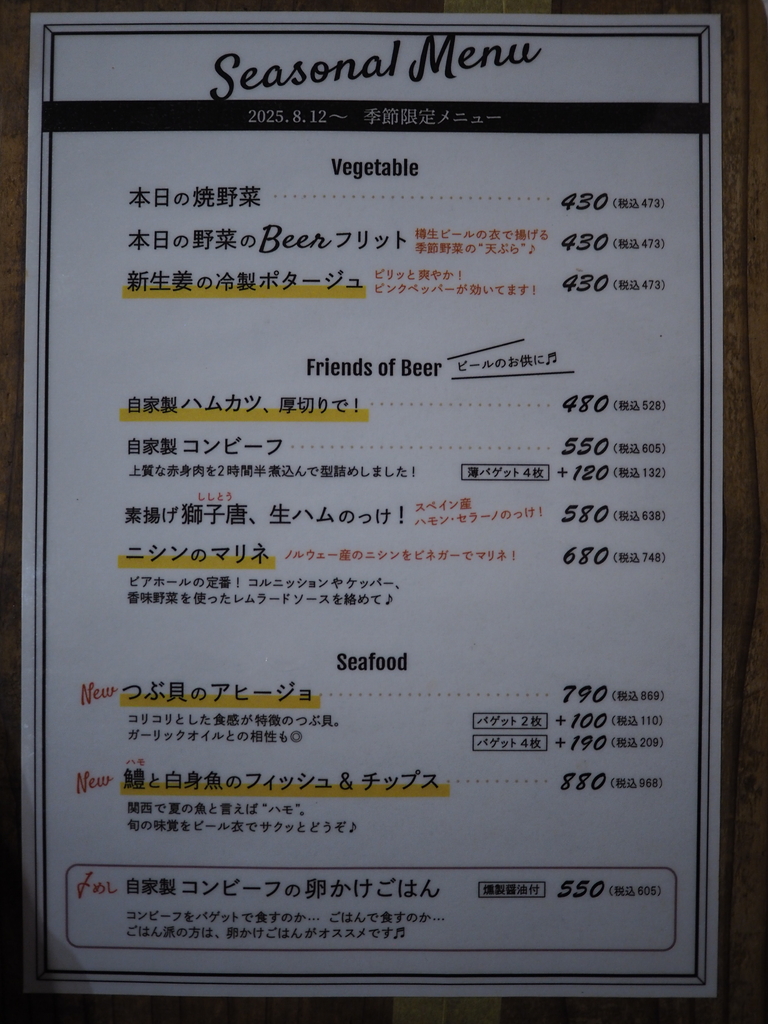 Seasonal Menu
2025.8.12～ 季節限定メニュー
Vegetable
本日の焼野菜 430（税込473）
本日の野菜のBeerフリット 樽生ビールの衣で揚げる 430（税込473）
季節野菜の“天ぷら”♪
新生姜の冷製ポタージュ ピリッと爽やか！ 430（税込473）
ピンクペッパーが効いてます！
Friends of Beer ビールのお供に♬
自家製ハムカツ、厚切りで！ 480（税込528）
自家製コンビーフ 550（税込605）
上質な赤身肉を2時間半煮込んで型詰めしました！ 薄バゲット4枚 +120（税込132）
ししとう
素揚げ獅子唐、生ハムのっけ！ スペイン産 580（税込638）
ハモン・セラーノのっけ！
ニシンのマリネ ノルウェー産のニシンをビネガーでマリネ！ 680（税込748）
ビアホールの定番！ コルニッションやケッパー、
香味野菜を使ったレムラードソースを絡めて♪
Seafood
New つぶ貝のアヒージョ 790（税込869）
コリコリとした食感が特徴のつぶ貝。 バゲット2枚 +100（税込110）
ガーリックオイルとの相性も◎ バゲット4枚 +190（税込209）
ハモ
New 鱧と白身魚のフィッシュ & チップス 880（税込968）
関西で夏の魚と言えば“ハモ”。
旬の味覚をビール衣でサクッとどうぞ♪
〆めし 自家製コンビーフの卵かけごはん 燻製醤油付 550（税込605）
コンビーフをバゲットで食すのか… ごはんで食すのか…
ごはん派の方は、卵かけごはんがオススメです♬